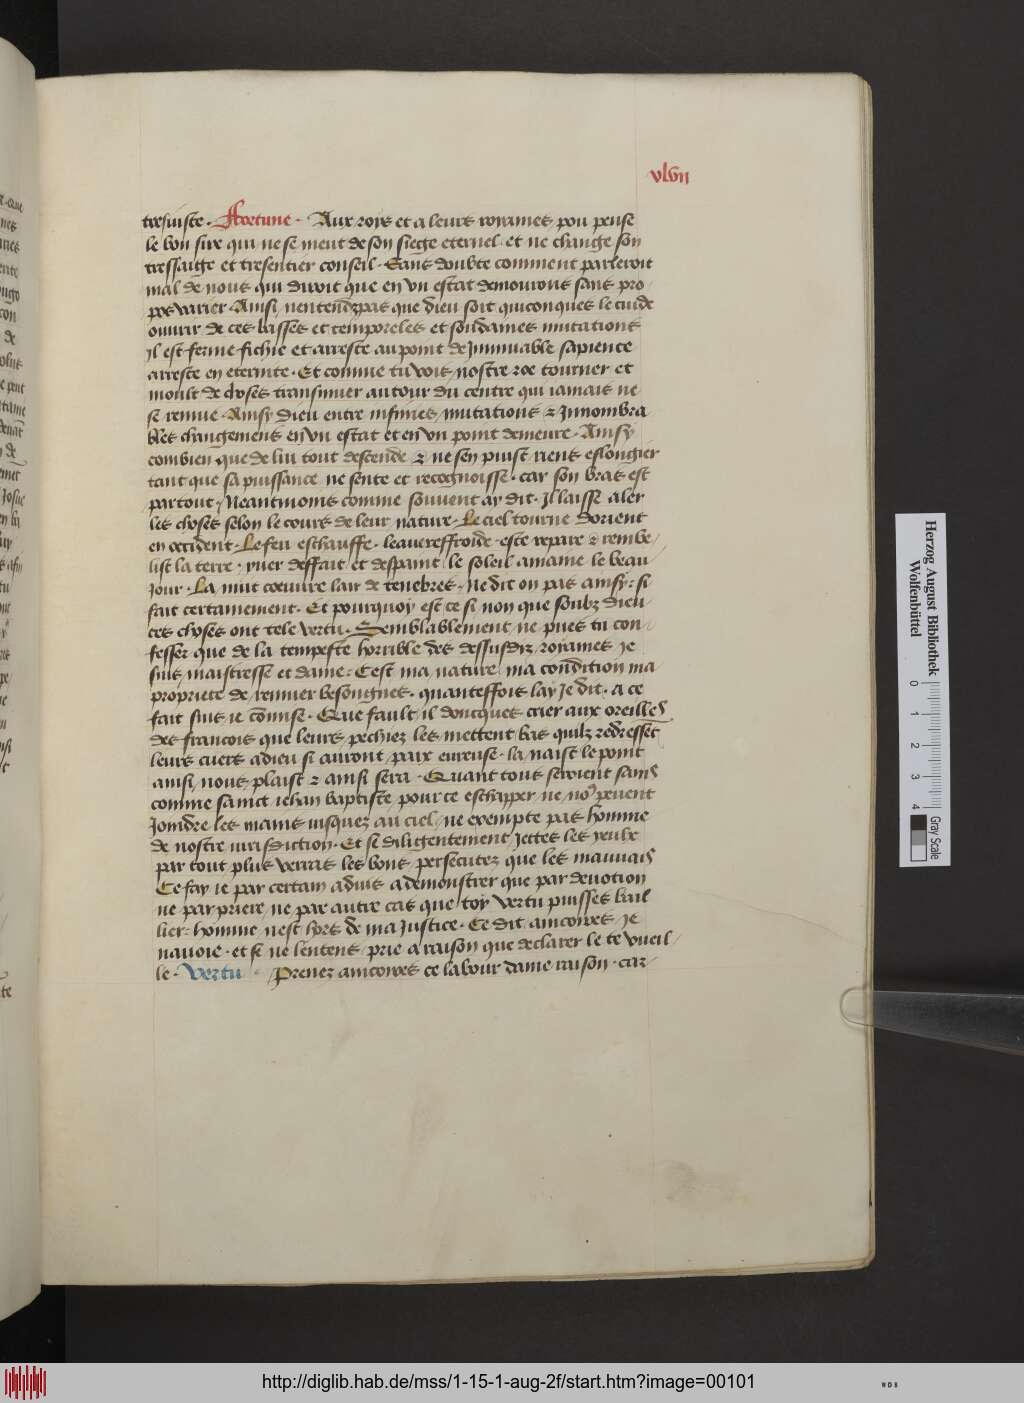 xlvii
tresiuste. Fortune. Aux rois et a leurs royames pou pense
le bon sire qui ne se meut de son siege eternel. et ne change son
tressaige et tresentier conseil. Sans doubte comment parleroit
mal de nous qui diroit que en vn estat demourons sans pro
pos varier. Ainsi nentendz pas que dieu soit quiconques le cuide
ouurir de ces basses et temporeles et souldaines mutations
Il est ferme fichie et arreste au point de Immuable sapience
arreste en eternite. Et comme tu vois nostre roe tourner et
moult de choses transmuer autour du centre qui iamais ne
se remue. Ainsy dieu entre infinies mutations & Innombra
bles changemens en vn estat et en vn point demeure. Ainsy
combien que de lui tout descende & ne sen puist riens eslongier
tant que sa puissance ne sente et recognoisse. car son bras est
partout, Neantmoins comme souuent ay dit. Il laisse aler
les choses selon le cours de leur nature. Le ciel tourne dorient
en occident. Le feu eschauffe. leaue reffroide. este repare & rembe/
list la terre. yuer deffait et despaint le soleil amaine le beau
Jour. La nuit coeuure lair de tenebres. Ne dit on pas ainsy: si
fait certainement. Et pourquoy est ce si non que soubz dieu
ces choses ont tele vertu. Semblablement ne pues tu con/
fesser que de la tempeste horrible des dessusdiz royames Je
suis maistresse et dame: Cest ma nature ma condition ma
propriete de remuer besongnes. quanteffois lay Je dit. A ce
fait suis ie comise. Que fault il doncques crier aux oreilles
des francois que leurs pechiez les mettent bas quilz redressent
leurs cuers a dieu si auront paix eureuse. la naist le point
ainsi nous plaist & ainsi sera. Quant tous seroient sains
comme sainct iehan baptiste pour ce eschapper ne nous peuent
Joindre les mains iusquez au ciel, ne exempte pas homme
de nostre iurisdiction. Et se diligentement Jettes les yeulx
par tout plus verras les bons persecutez que les mauuais
Ce fay ie par certain aduis a demonstrer que par deuotion
ne par priere ne par autre cas que toy vertu puisses bail
lier: homme nest hors de ma Justice. Ce dit aincoires Je
nauoie. et se ne lentens prie a raison que declarer le te vueil/
le. Vertu. Prenez aincoires ce labour dame raison. car/
Herzog August Bibliothek
Wolfenbüttel
0 1 2 3 4
Gray Scale
http://diglib.hab.de/mss/1-15-1-aug-2f/start.htm?image=00101
WDB